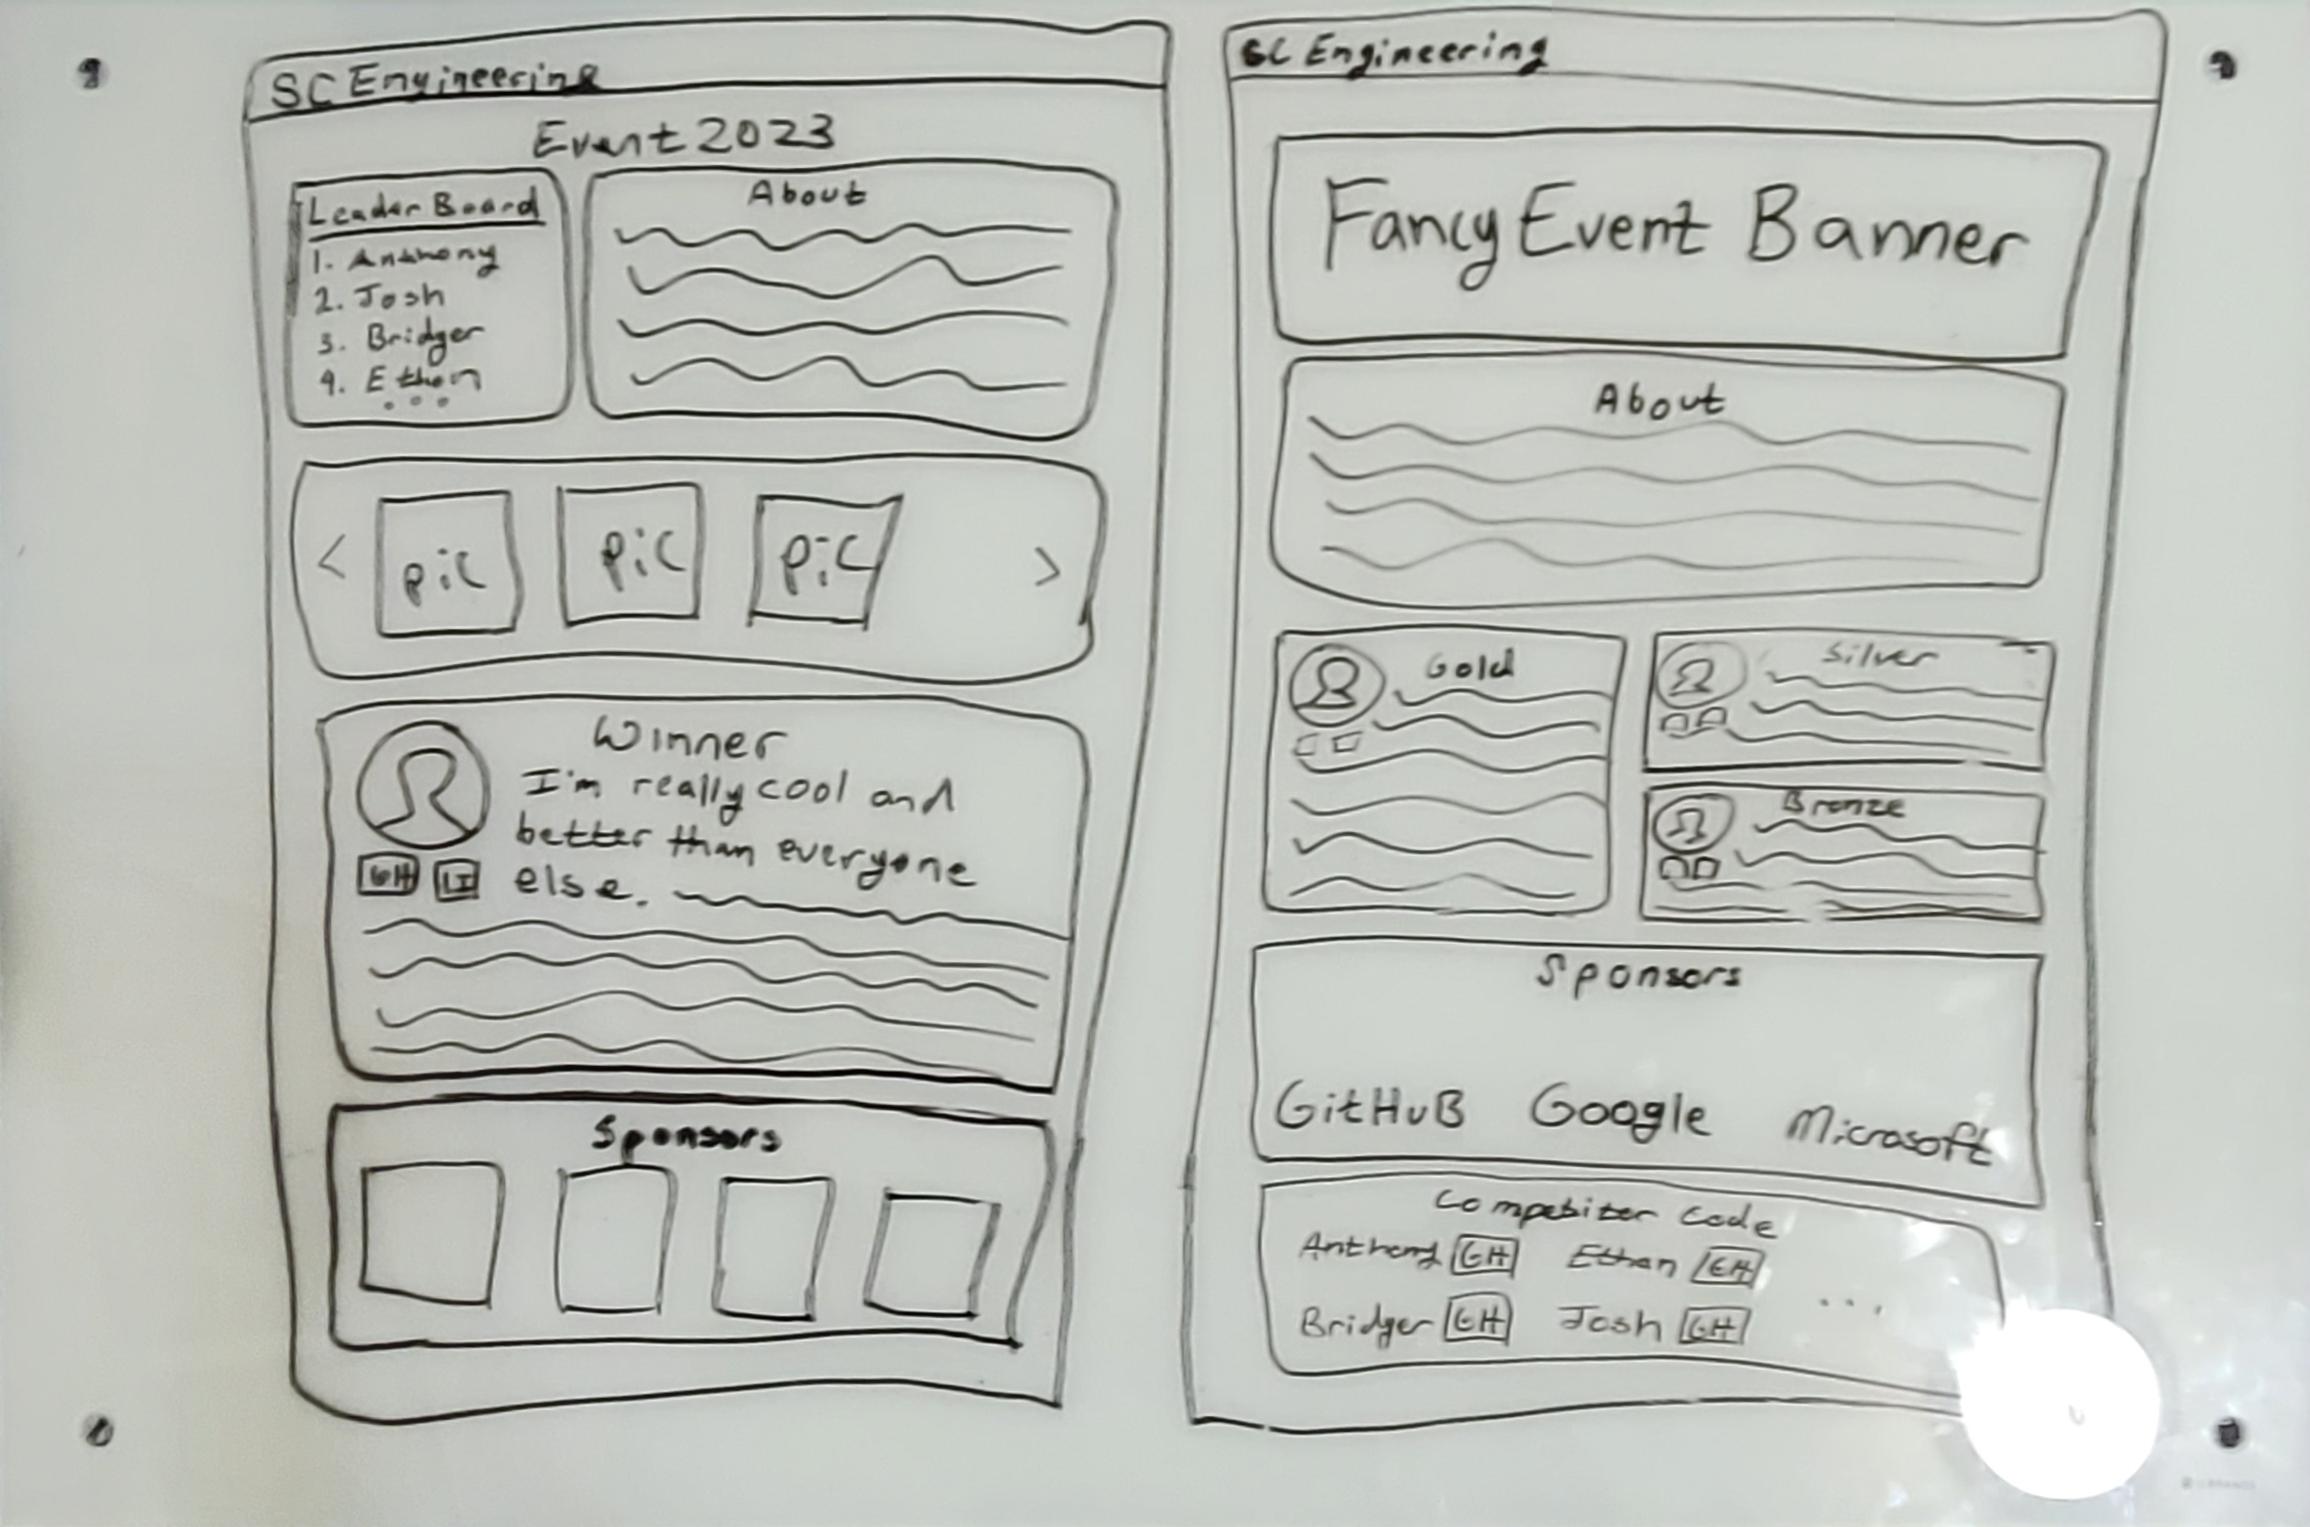 SC Engineering
Event 2023
Leader Board
1. Anthony
2. Josh
3. Bridger
4. Ethan
...
About
<
pic
pic
pic
>
Winner
I'm really cool and
better than everyone
else.
GH LI
Sponsors
SC Engineering
Fancy Event Banner
About
Gold
Silver
Bronze
Sponsors
GitHuB Google Microsoft
Competiter Code
Anthony GH Ethan GH
...
Bridger GH Josh GH